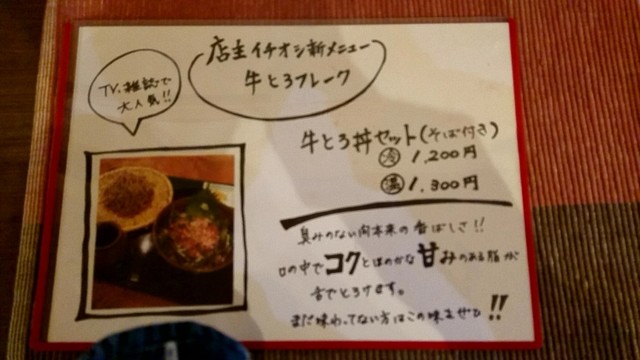 店主イチオシ新メニュー
牛とろフレーク
TV、雑誌で
大人気!!
牛とろ丼セット(そば付き)
冷 1,200円
温 1,300円
臭みのない肉本来の香ばしさ!!
口の中でコクとほのかな甘みのある脂が
舌でとろけます。
まだ味わってない方はこの味をぜひ!!